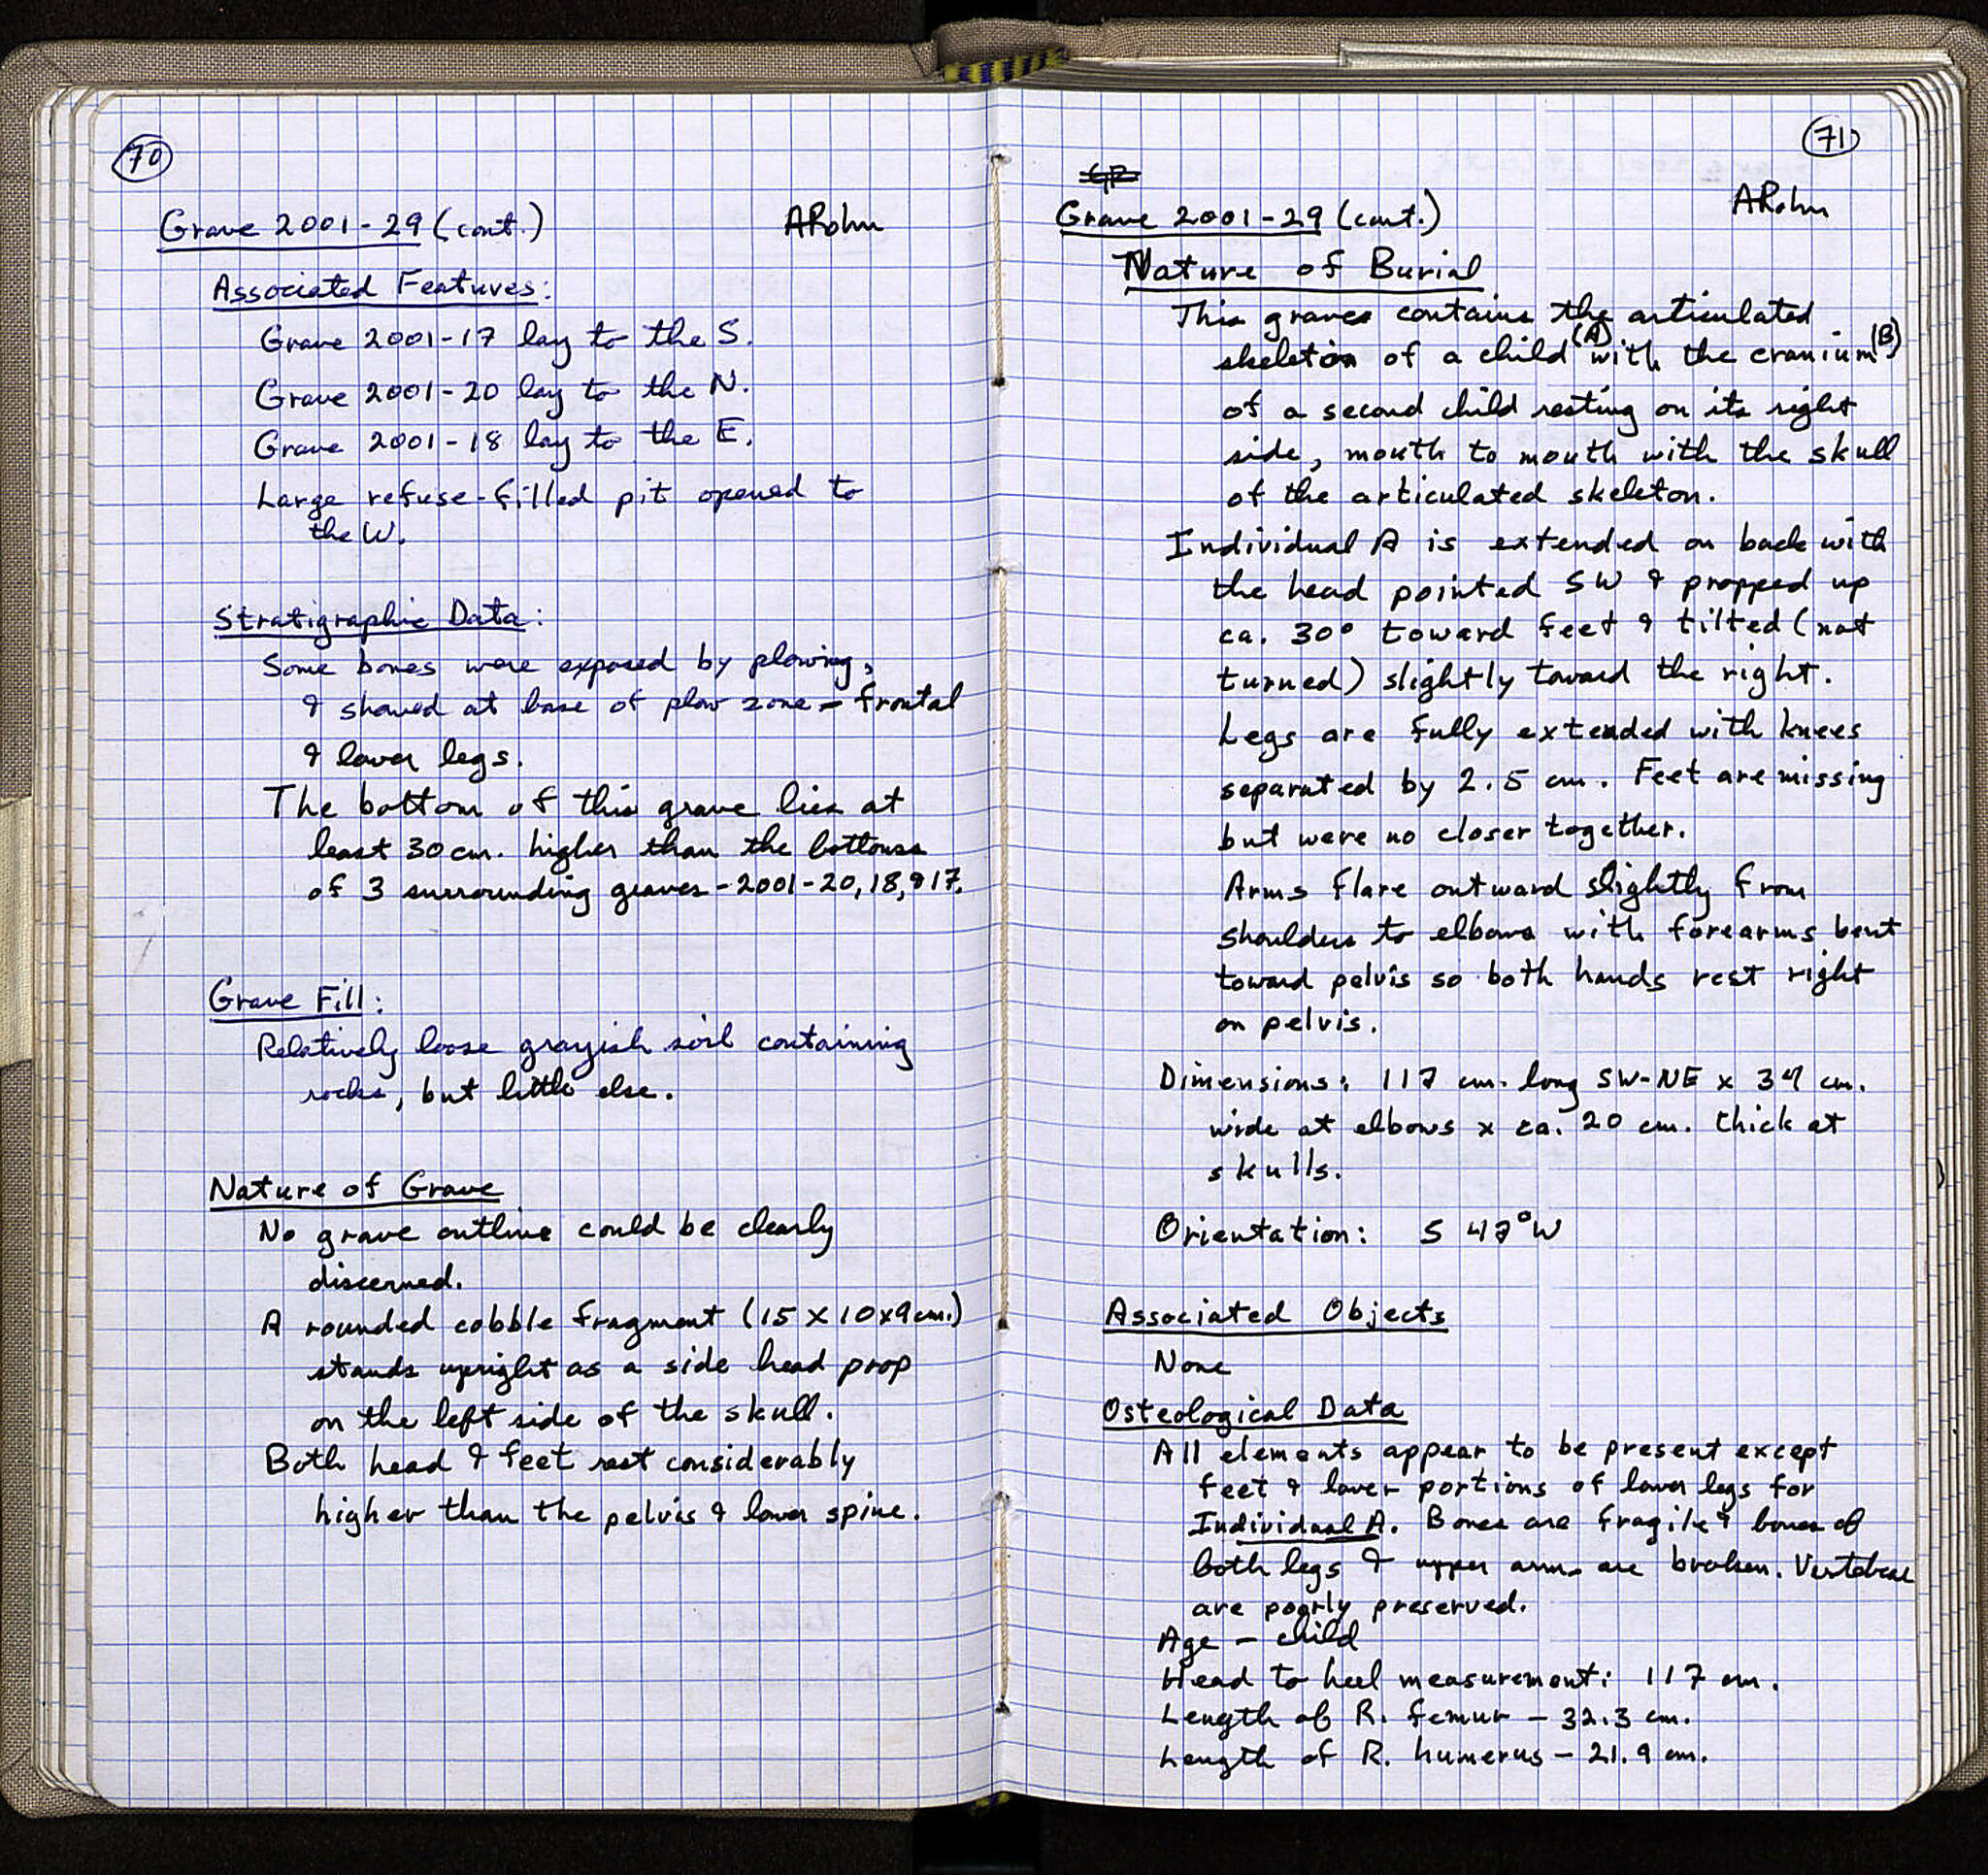 70
Grave 2001-29 (cont.) ARohn
Associated Features:
Grave 2001-17 lay to the S.
Grave 2001-20 lay to the N.
Grave 2001-18 lay to the E.
Large refuse-filled pit opened to
the W.
Stratigraphic Data:
Some bones were exposed by plowing,
& showed at base of plow zone – frontal
& lower legs.
The bottom of this grave lies at
least 30 cm. higher than the bottoms
of 3 surrounding graves - 2001-20, 18, & 17.
Grave Fill:
Relatively loose grayish soil containing
rocks, but little else.
Nature of Grave
No grave outline could be clearly
discerned.
A rounded cobble fragment (15 x 10 x 9 cm.)
stands upright as a side head prop
on the left side of the skull.
Both head & feet rest considerably
higher than the pelvis & lower spine.
71
ARohn
Grave 2001-29 (cont.)
Nature of Burial
This grave contains the articulated
skeleton of a child (A) with the cranium (B)
of a second child resting on its right
side, mouth to mouth with the skull
of the articulated skeleton.
Individual A is extended on back with
the head pointed SW & propped up
ca. 30° toward feet & tilted (not
turned) slightly toward the right.
Legs are fully extended with knees
separated by 2.5 cm. Feet are missing
but were no closer together.
Arms flare outward slightly from
shoulders to elbows with forearms bent
toward pelvis so both hands rest right
on pelvis.
Dimensions: 117 cm. long SW-NE x cm.
wide at elbows x ca. 20 cm. thick at
skulls.
Orientation: S 47° W
Associated Objects
None
Osteological Data
All elements appear to be present except
feet & lower portions of lower legs for
Individual A. Bones are fragile & bones of
both legs & upper arms are broken. Vertebrae
are poorly preserved.
Age – child
Head to heel measurement: 117 cm.
Length of R. femur – 32.3 cm.
Length of R. humerus – 21.9 cm.